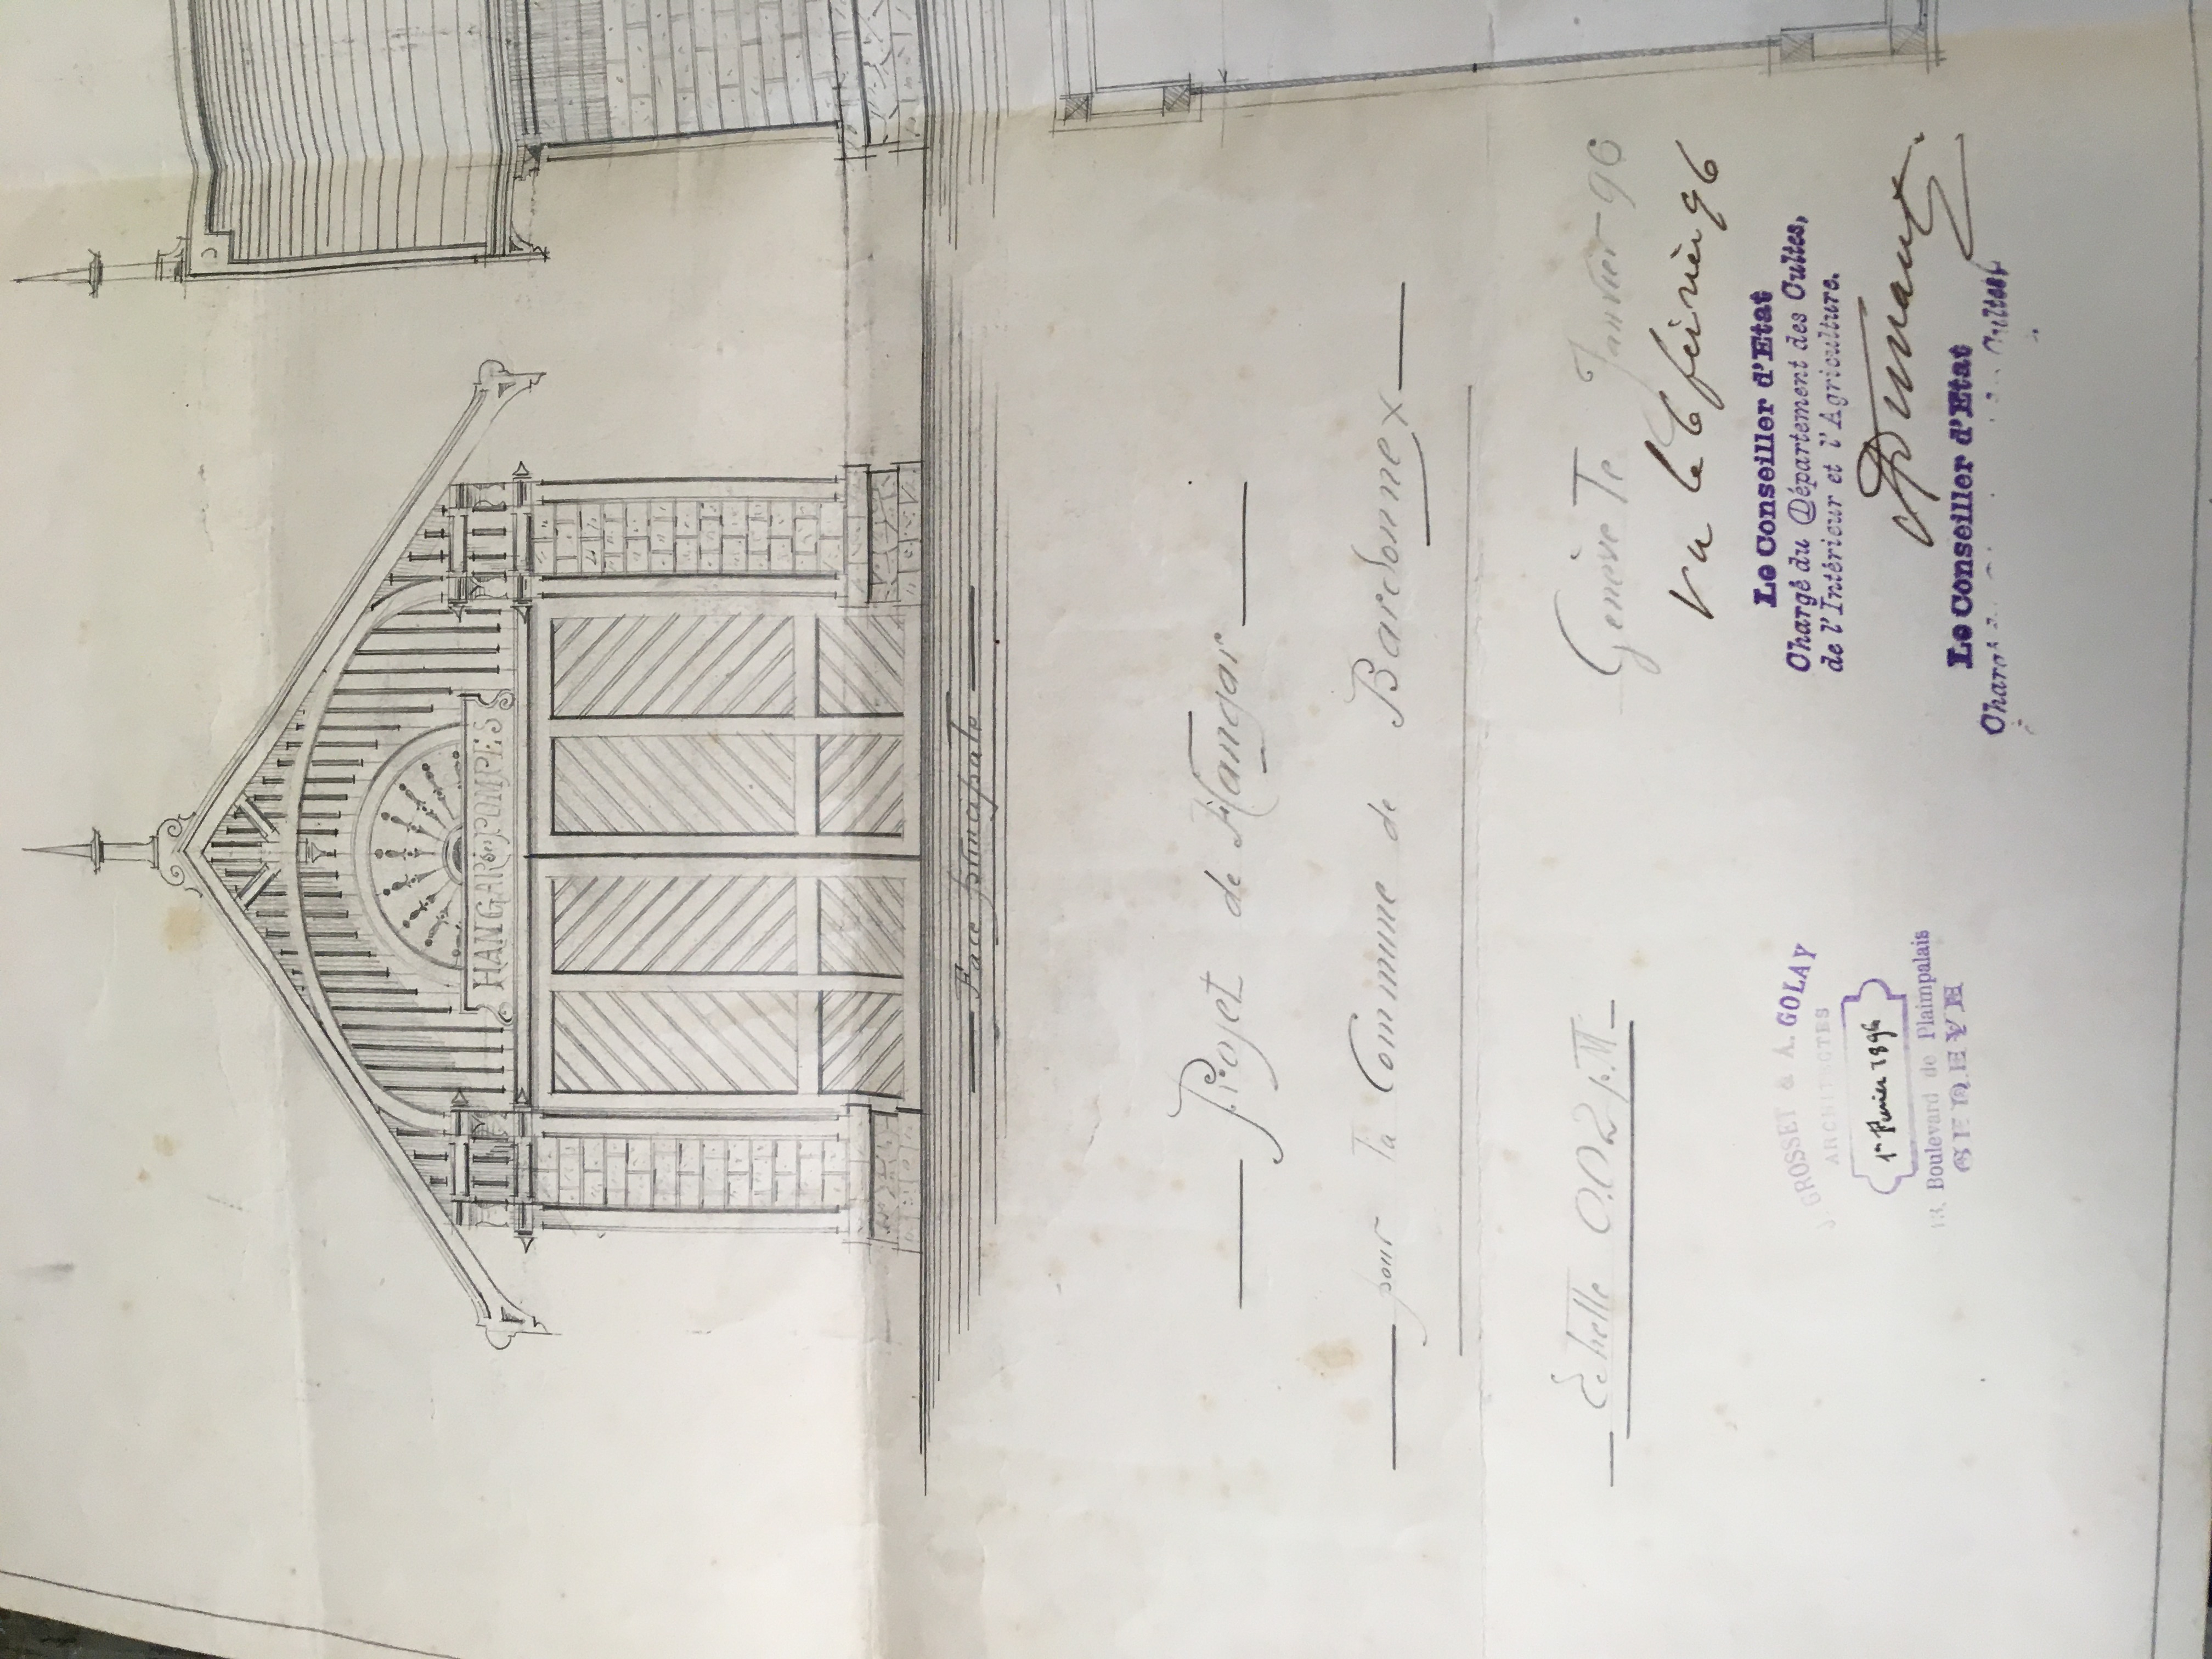 HANGAR des POMPES
Face principale
Projet de Hangar
pour la Commune de Bardonnex
Echelle 0.02 p.M
Genève le Janvier 96
Vu le 6 février 96
Le Conseiller d'Etat
Chargé du Département des Cultes,
de l'Intérieur et l'Agriculture.
Le Conseiller d'Etat
Cultes
J. GROSSET & A. GOLAY
ARCHITECTES
1er Février 1896
13, Boulevard de Plainpalais
GENEVE